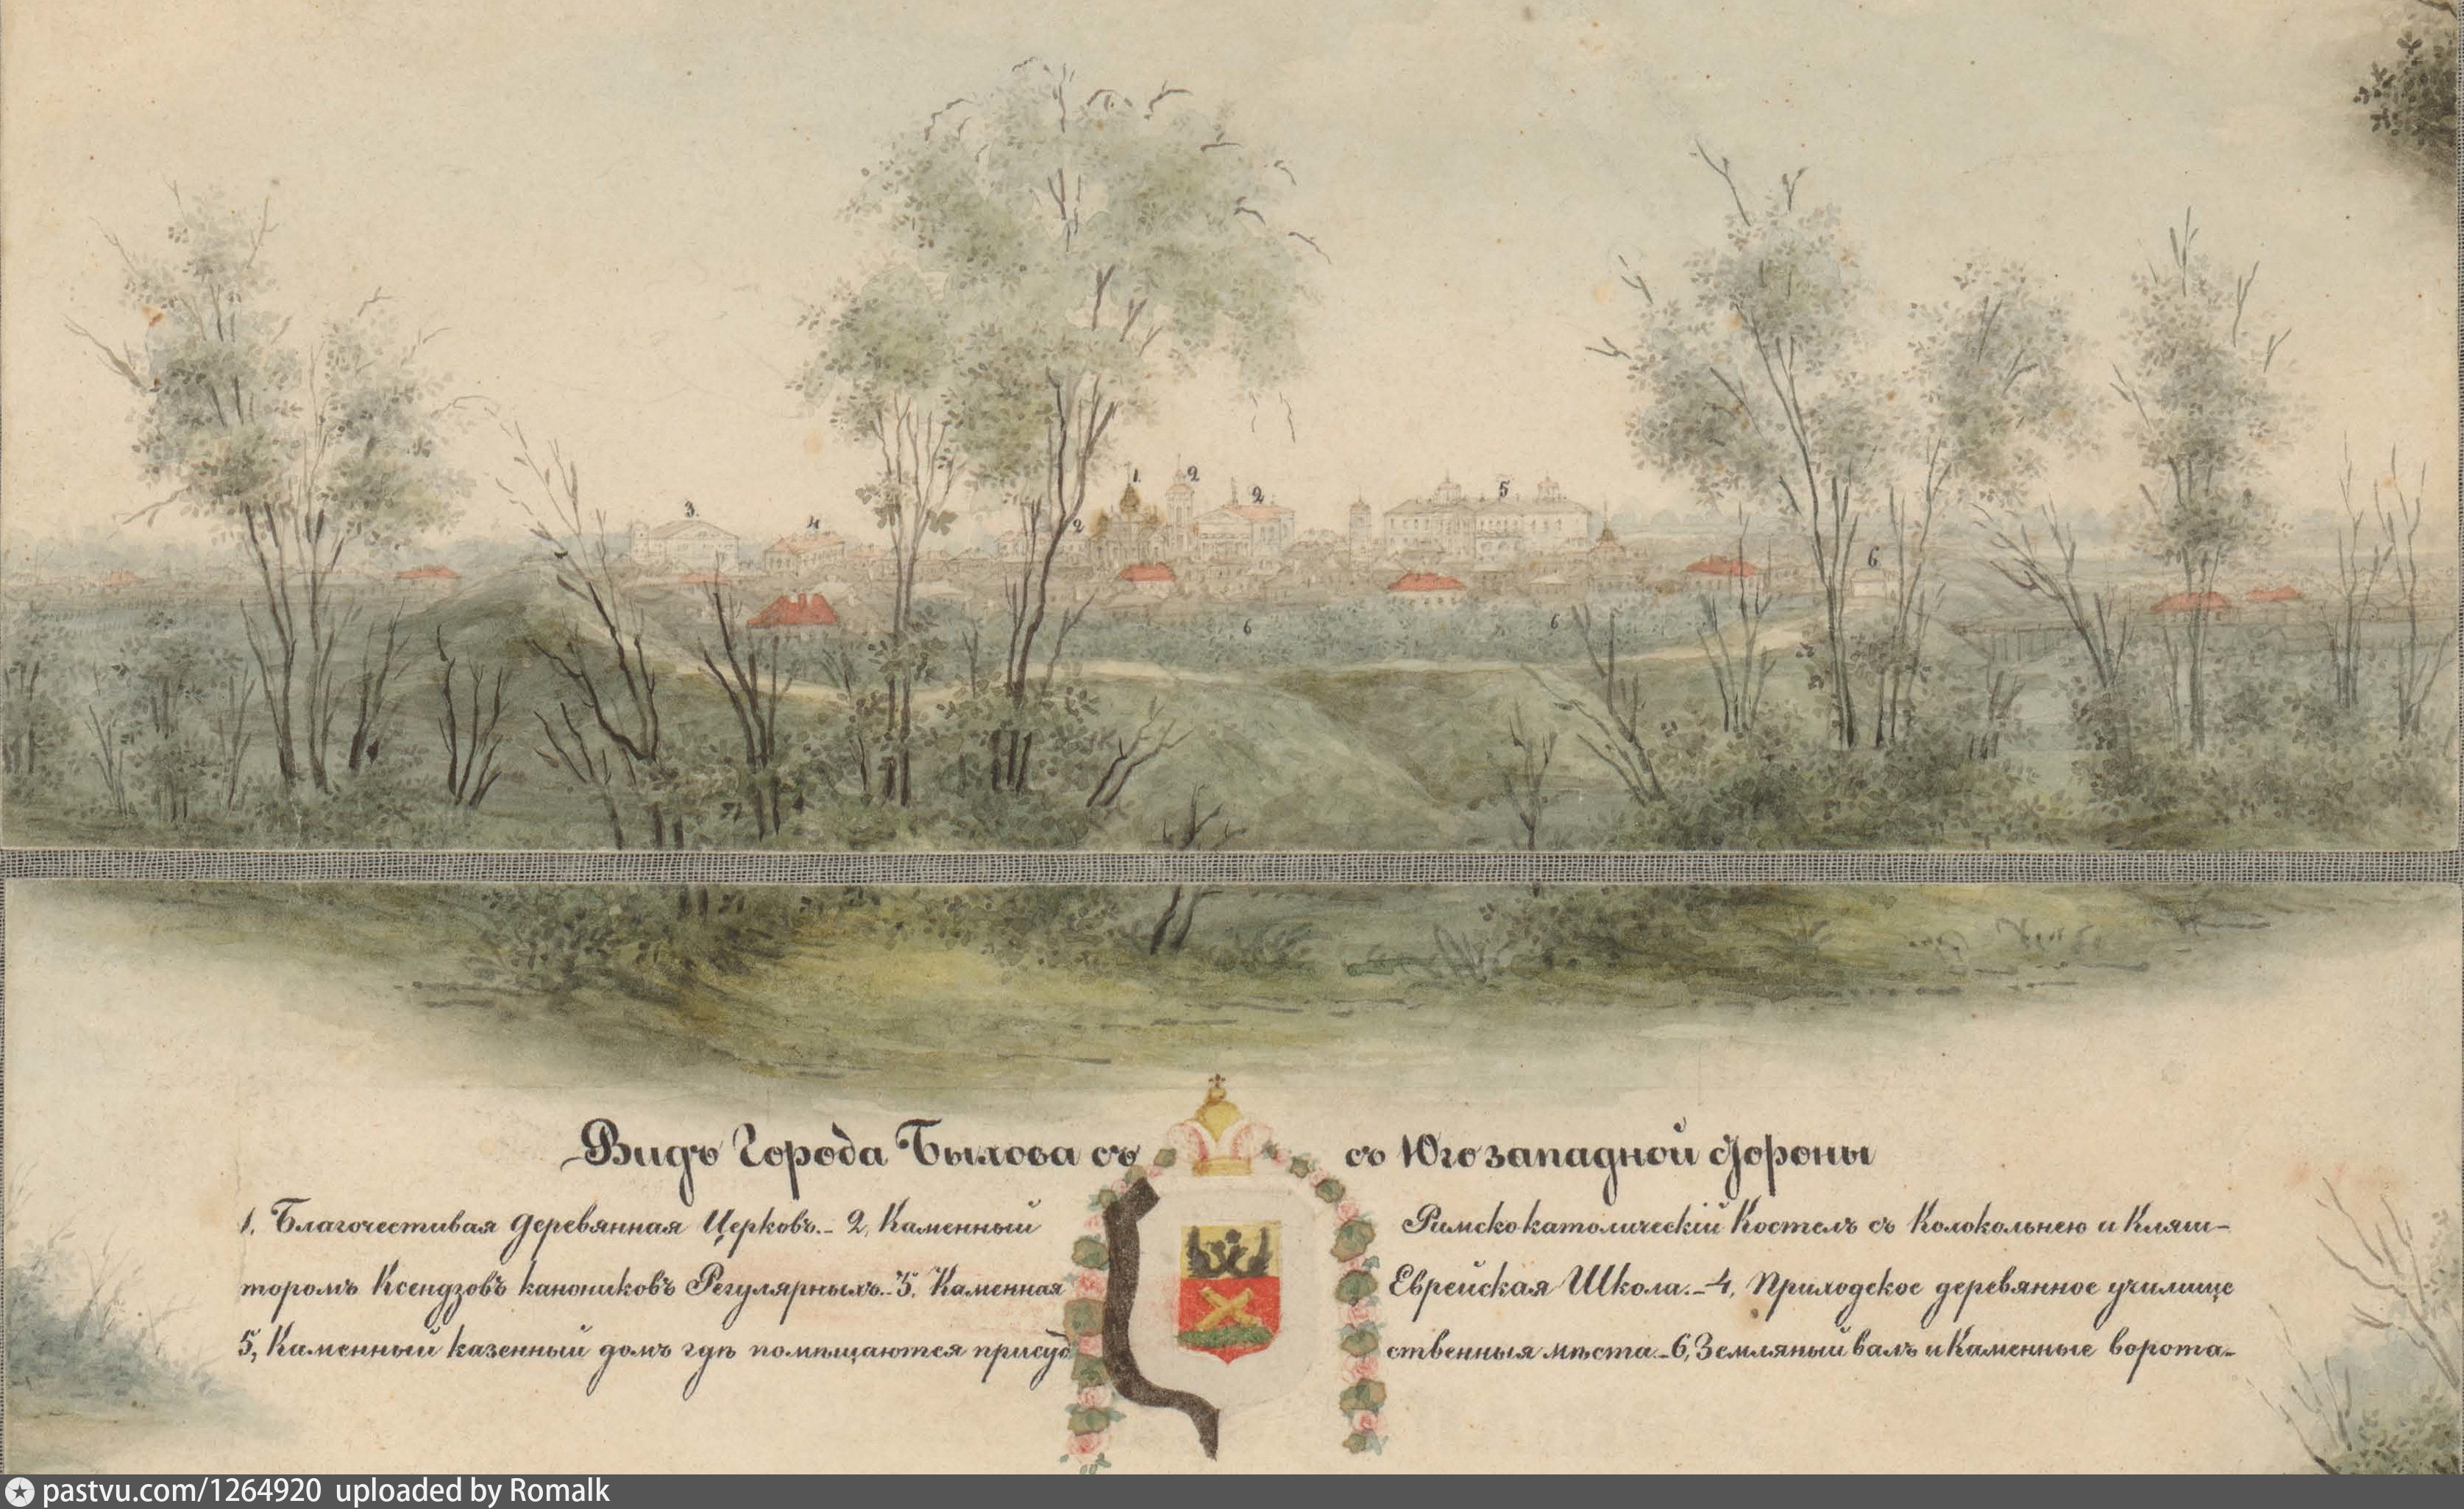 1.
2
2
5
3.
4
2
6
6
6
Видъ Города Быхова съ съ Югозападной стороны
1, Благочестивая деревянная Церковъ.- 2, Каменный Римскокатолическій Костелъ съ Колокольнею и Кляш-
торомъ Ксендзовъ канониковъ Регулярныхъ.- 3, Каменная Еврейская Школа.- 4, Приходское деревянное училище
5, Каменный казенный домъ гдѣ помѣщаются присуд ственныя мѣста.- 6, Земляный валъ и Каменные ворота.-
pastvu.com/1264920 uploaded by Romalk